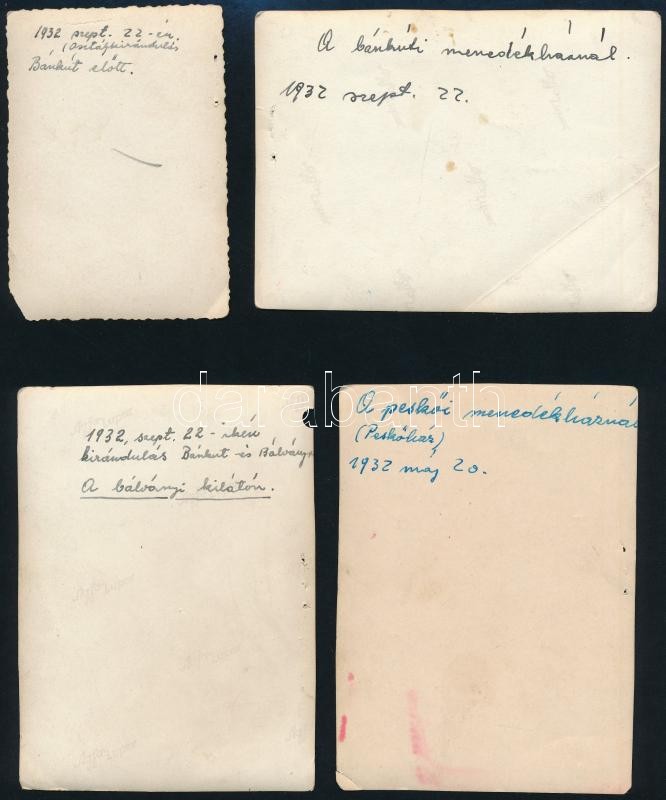 1932 szept. 22-én
(osztálykirándulás
Bánkút előtt.
A bánkúti menedékháznál.
1932 szept. 22.
darabanth
1932, szept. 22-ikén
kirándulás Bánkút és Bálvány
A bálványi kilátón.
A peskői menedékháznál
(Peskőház)
1932 máj 20.